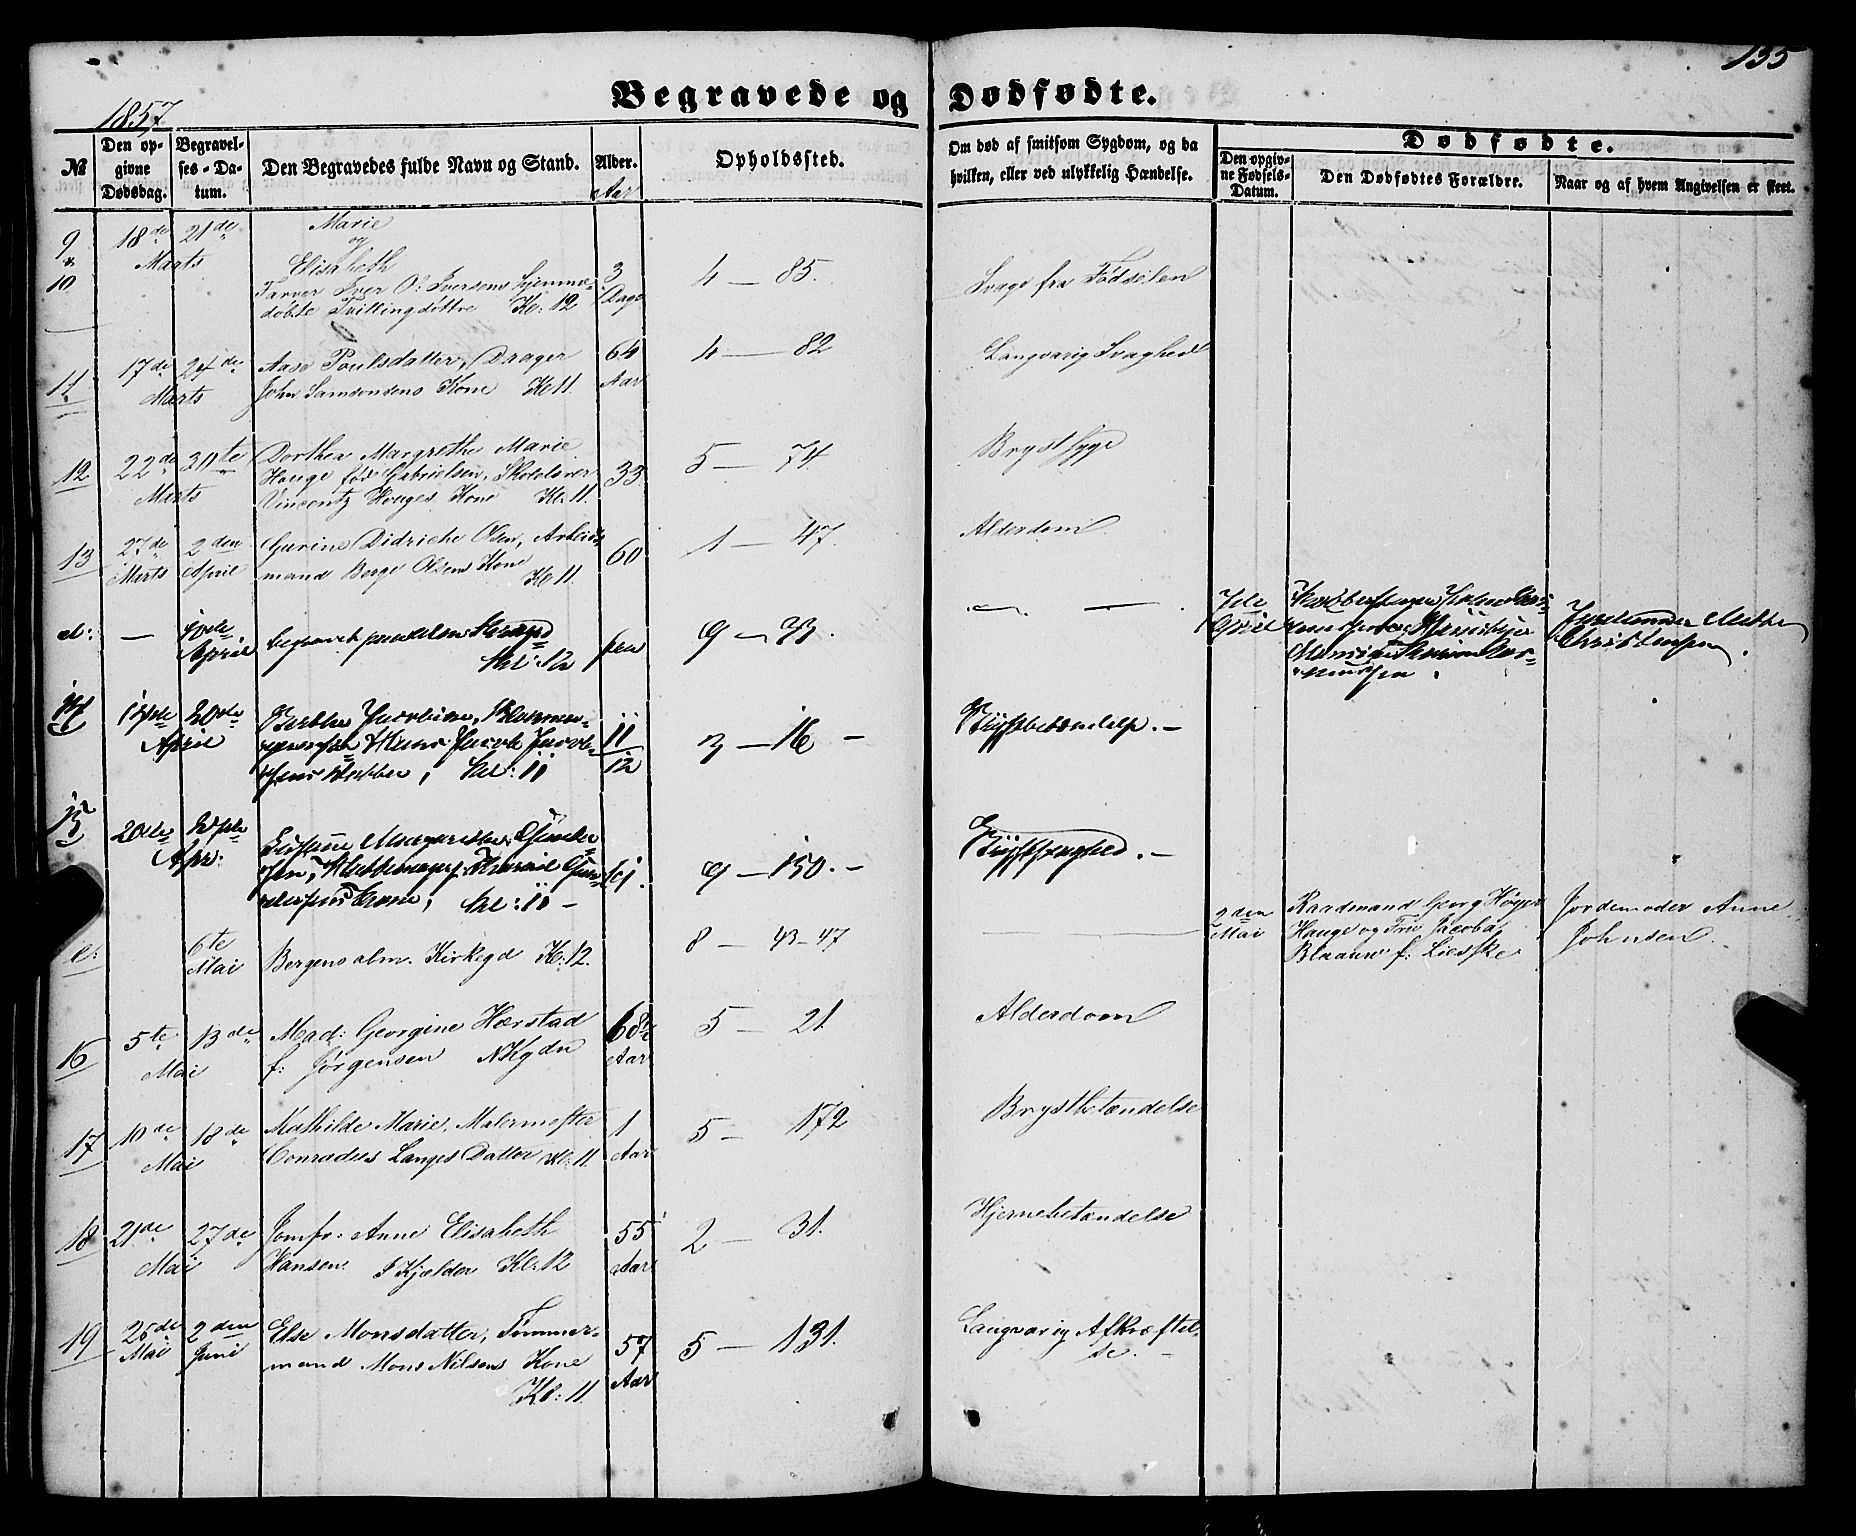 135
Begravede og Dødfødte.
1857
№
Den opgivne Dødsdag.
Begravelses-Datum.
Den Begravedes fulde Navn og Stand.
Alder.
Aar
Opholdssted.
Om død af smitsom Sygdom, og da
hvilken, eller ved ulykkelig Hændelse.
Dødfødte.
Den opgivne Fødsels-Datum.
Den Dødfødtes Forældre.
Naar og af hvem Angivelsen er skeet.
9
10
18de Marts
21de
Marie
og
Elisabeth
Farver Iver O: Iversens hjemme-
døbte Tvillingdøttre Kl: 12
3
Dage
4 — 85.
Svage fra Fødselen
11
17de Marts
24de
Aase Poulsdatter, Drager
John Samsonsens Kone Kl 11.
64
Aar
4 — 82
Langvarig Svaghed
12
22de Marts
30te
Dorthea Margrethe Marie
Hauge fød Gabrielsen, Skolelærer
Vincentz Hauges Kone Kl. 11.
33
5 — 74
Brystsyge
13
27de Marts
2den April
Gurine Didriche Olsen, Arbeids-
mand Berge Olsens Kone
Kl 11.
60
1 — 47
Alderdom
—
April
Kl: 12
9 — 33.
7de
April
Christensen.
14
17de
April
20de
Jacob
Kl: 11
11
12
3 — 16 —
Brystbetændelse. —
15
20de
Apr:
Margarethe
Kone, Kl: 11 —
61.
9 — 150. —
Brystsvaghed. —
6te
Mai
Bergens alm. Kirkegd Kl: 12.
8 — 43-47
2den
Mai
Raadmand Georg Høyer
Hauge og Fru Jacoba
Blaauw f: Liedske
Jordemoder Anne
Johnsen.
16
5te
Mai
13de
Mad: Georgine Hærstad
f: Jørgensen NKgdn
68½
Aar
5 — 21.
Alderdom
17
10de
Mai
18de
Mathilde Marie, Malermester
Conradus Langes Datter Kl: 11.
1
Aar
5 — 172
Brystbetændelse
18
21de
Mai
27de
Jomfr: Anne Elisabeth
Hansen. I Kjælder Kl: 12
55
Aar
2 — 31.
Hjernebetændelse
19
25de
Mai
2den
Juni
Else Monsdatter, Tømmer-
mand Mons Nilsens Kone
Kl: 11.
57
Aar
5 — 131.
Langvarig Afkræftel-
se. —